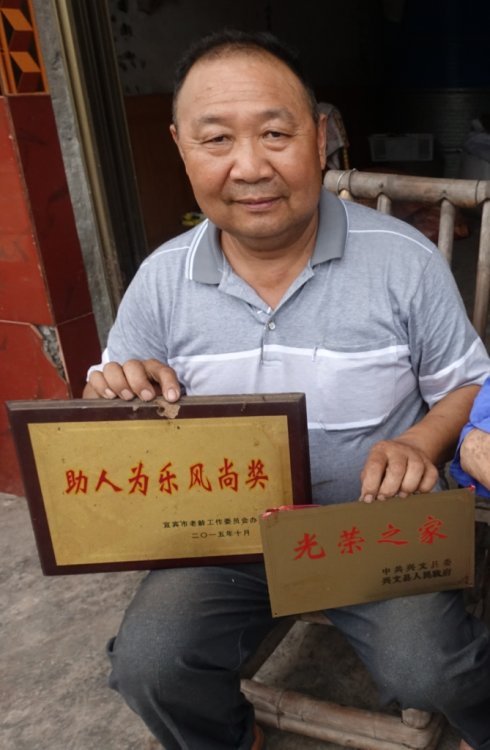 助人为乐风尚奖
宜宾市老龄工作委员会办
二〇一五年十月
光荣之家
中共兴文县委
兴文县人民政府